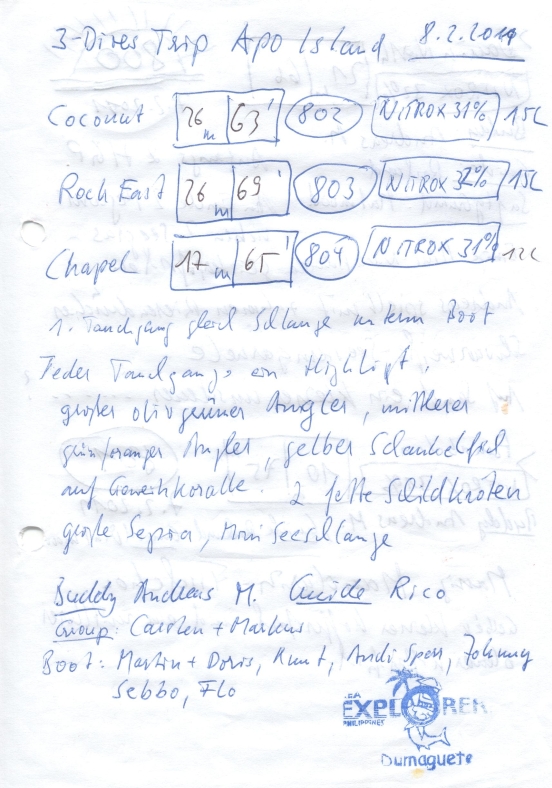 3-Dives Trip Apo Island 8.2.2014
Coconut 26 m 63' 802 NITROX 31% 15L
Rock East 26 m 69' 803 NITROX 32% 15L
Chapel 17 m 65' 804 NITROX 31% 12L
1. Tauchgang gleich Schlange unterm Boot
Jeder Tauchgang ein Highlight.
großer olivgrüner Angler, mittlerer
grün/oranger Angler, gelber Schaukelfisch
auf Geweihkoralle. 2 fette Schildkröten
große Sepia, Mini Seeschlange
Buddy Andreas M. Guide Rico
Group: Carolin + Markus
Boot: Martin + Doris, Kunt, Andi Spon, Johnny
Sebbo, Flo
SEA
EXPLORER
PHILIPPINES
Dumaguete